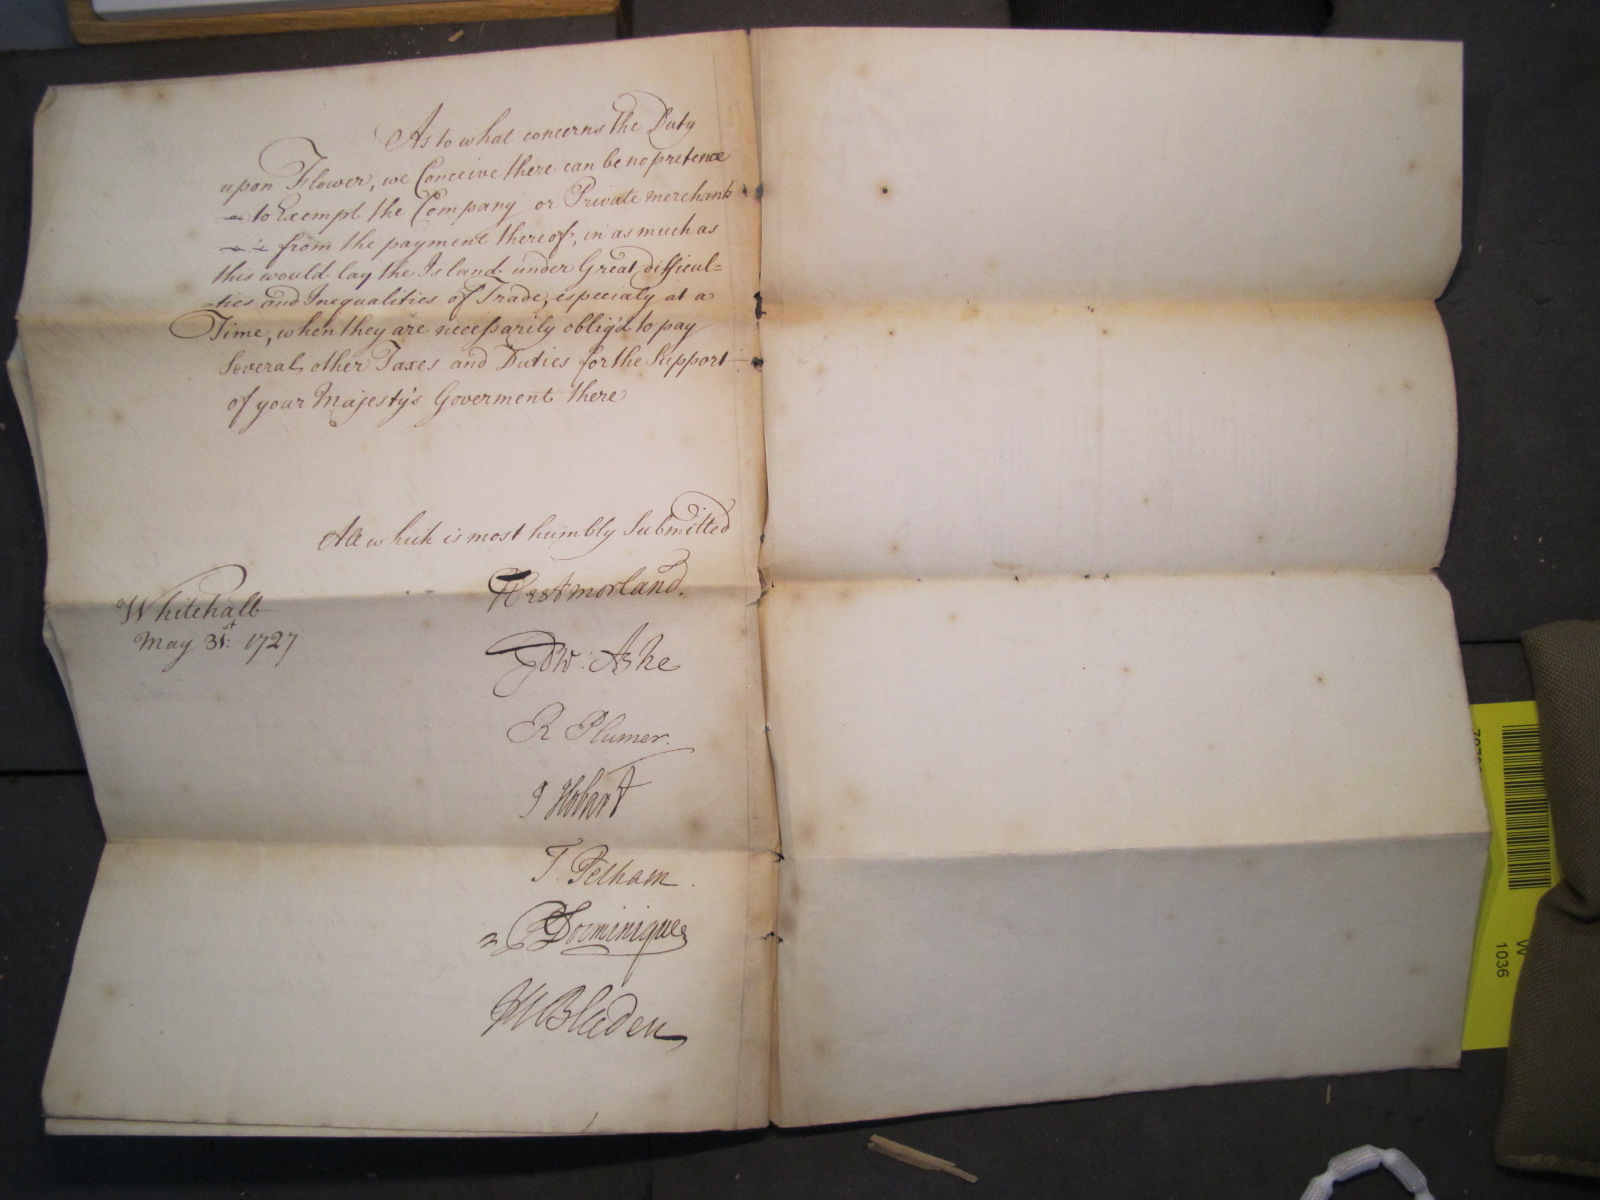 As to what concerns the Duty
upon Flower, we Conceive there can be no pretence
to Exempt the Company or Private merchants
from the payment thereof, in as much as
this would lay the Island under Great difficul=
=ties and Inequalities of Trade, especialy at a
Time, when they are necessarily oblig'd to pay
Several other Taxes and Duties for the Support
of your Majesty's Goverment there
All which is most humbly Submitted
Whitehall
May 31st: 1727
Westmorland.
Edw: Ashe
R Plumer.
J Hobart
T. Pelham.
P Dominique
M Bladen
W
1036